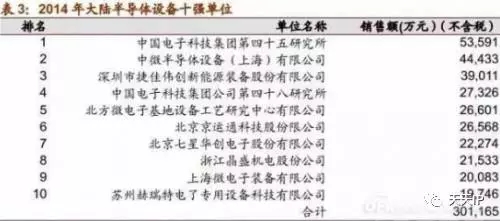 表 3：2014 年大陆半导体设备十强单位
排名 单位名称 销售额(万元) (不含税)
1 中国电子科技集团第四十五研究所 53,591
2 中微半导体设备（上海）有限公司 44,433
3 深圳市捷佳伟创新能源装备股份有限公司 39,011
4 中国电子科技集团公司第四十八研究所 27,326
5 北方微电子基地设备工艺研究中心有限公司 26,601
6 北京京运通科技股份有限公司 26,568
7 北京七星华创电子股份有限公司 22,274
8 浙江晶盛机电股份公司 21,533
9 上海微电子装备有限公司 20,083
10 苏州赫瑞特电了专用设备科技有限公司 19,746
合计 301,165
天天IP